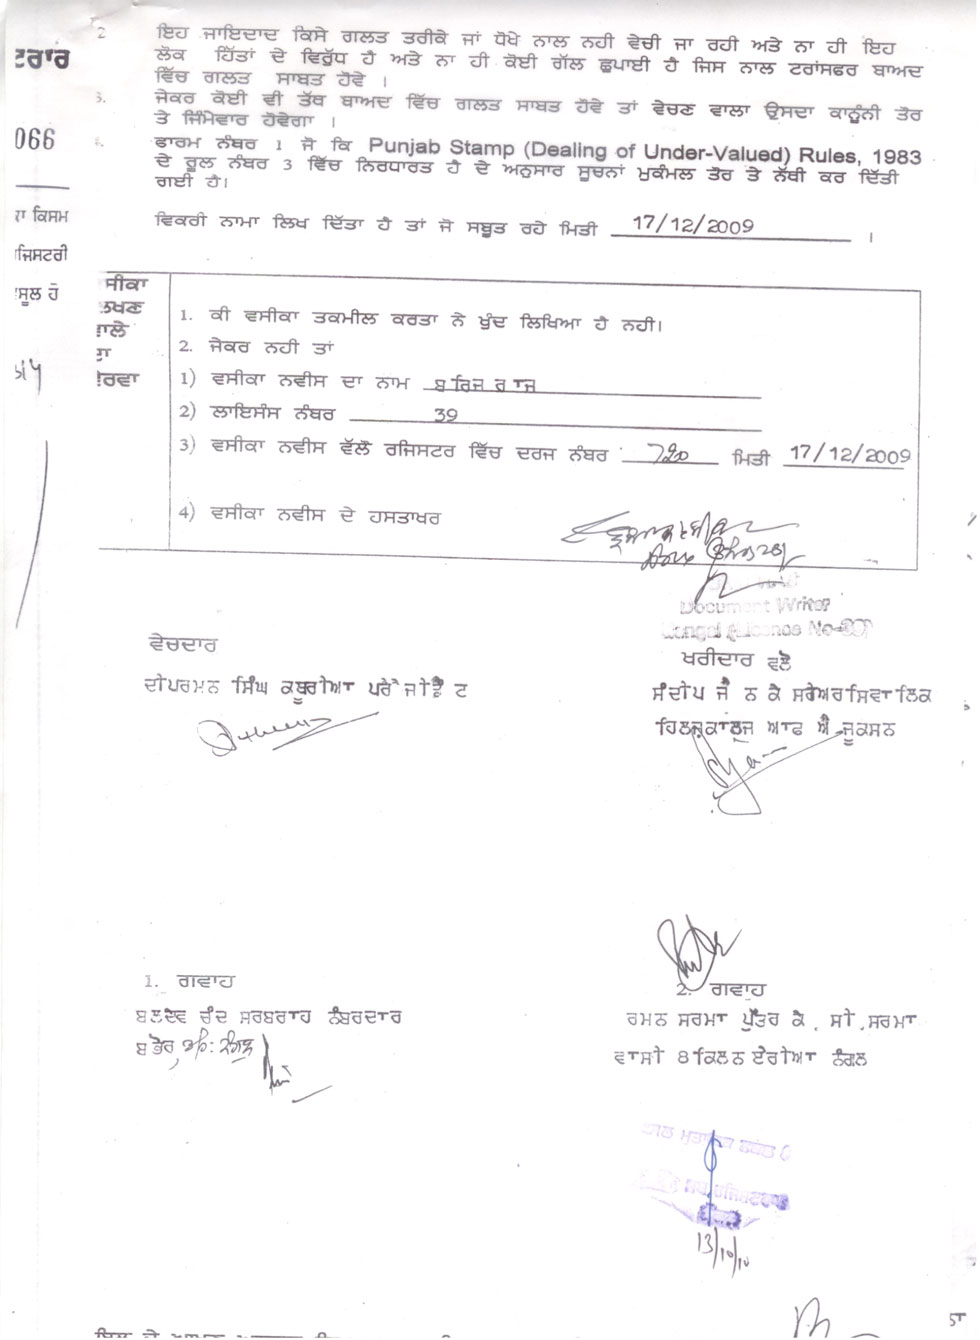 2 ਇਹ ਜਾਇਦਾਦ ਕਿਸੇ ਗਲਤ ਤਰੀਕੇ ਜਾਂ ਧੋਖੇ ਨਾਲ ਨਹੀ ਵੇਚੀ ਜਾ ਰਹੀ ਅਤੇ ਨਾ ਹੀ ਇਹ
ਟਰਾਰ
ਲੋਕ ਹਿੱਤਾਂ ਦੇ ਵਿਰੁੱਧ ਹੈ ਅਤੇ ਨਾ ਹੀ ਕੋਈ ਗੱਲ ਛੁਪਾਈ ਹੈ ਜਿਸ ਨਾਲ ਟਰਾਂਸਫਰ ਬਾਅਦ
ਵਿੱਚ ਗਲਤ ਸਾਬਤ ਹੋਵੇ ।
3. ਜੇਕਰ ਕੋਈ ਵੀ ਤੱਥ ਬਾਅਦ ਵਿੱਚ ਗਲਤ ਸਾਬਤ ਹੋਵੇ ਤਾਂ ਵੇਚਣ ਵਾਲਾ ਉਸਦਾ ਕਾਨੂੰਨੀ ਤੋਰ
ਤੇ ਜਿੰਮੇਵਾਰ ਹੋਵੇਗਾ ।
066
ਫਾਰਮ ਨੰਬਰ 1 ਜੋ ਕਿ Punjab Stamp (Dealing of Under-Valued) Rules, 1983
ਦੇ ਰੂਲ ਨੰਬਰ 3 ਵਿੱਚ ਨਿਰਧਾਰਤ ਹੈ ਦੇ ਅਨੁਸਾਰ ਸੂਚਨਾਂ ਮੁਕੰਮਲ ਤੋਰ ਤੇ ਨੱਥੀ ਕਰ ਦਿੱਤੀ
ਗਈ ਹੈ।
ਾ ਕਿਸਮ
ਵਿਕਰੀ ਨਾਮਾ ਲਿਖ ਦਿੱਤਾ ਹੈ ਤਾਂ ਜੋ ਸਬੂਤ ਰਹੇ ਮਿਤੀ 17/12/2009 ।
ਜਿਸਟਰੀ
ਸੂਲ ਹੋ
ਸੀਕਾ
ਖਣ
ਾਲੇ
ਾ
ਰਵਾ
1. ਕੀ ਵਸੀਕਾ ਤਕਮੀਲ ਕਰਤਾ ਨੇ ਖੁੰਦ ਲਿਖਿਆ ਹੈ ਨਹੀ।
2. ਜੇਕਰ ਨਹੀ ਤਾਂ
1) ਵਸੀਕਾ ਨਵੀਸ ਦਾ ਨਾਮ ਬਰਿਜ ਰਾਜ
2) ਲਾਇਸੰਸ ਨੰਬਰ 39
3) ਵਸੀਕਾ ਨਵੀਸ ਵੱਲੋਂ ਰਜਿਸਟਰ ਵਿੱਚ ਦਰਜ ਨੰਬਰ 720 ਮਿਤੀ 17/12/2009
4) ਵਸੀਕਾ ਨਵੀਸ ਦੇ ਹਸਤਾਖਰ
Document Writer
ਵੇਚਦਾਰ
ਖਰੀਦਾਰ ਵਲੋਂ
ਦੀਪਰਮਨ ਸਿੰਘ ਕਥੂਰੀਆ ਪਰੈਜੀਡੈਟ
ਸੰਦੀਪ ਜੈਨ ਕੇ ਸਰੇਅਰ ਸਿਵਾਲਿਕ
ਹਿਲਜ ਕਾਲਜ ਆਫ ਐਜੂਕਸਨ
1. ਗਵਾਹ
2. ਗਵਾਹ
ਬਲਦੇਵ ਚੰਦ ਸਰਬਰਾਹ ਨੰਬਰਦਾਰ
ਰਮਨ ਸਰਮਾ ਪੁੱਤਰ ਕੇ . ਸੀ .ਸਰਮਾ
ਵਾਸੀ 8 ਕਿਲਨ ਏਰੀਆ ਨੰਗਲ
13/10/10